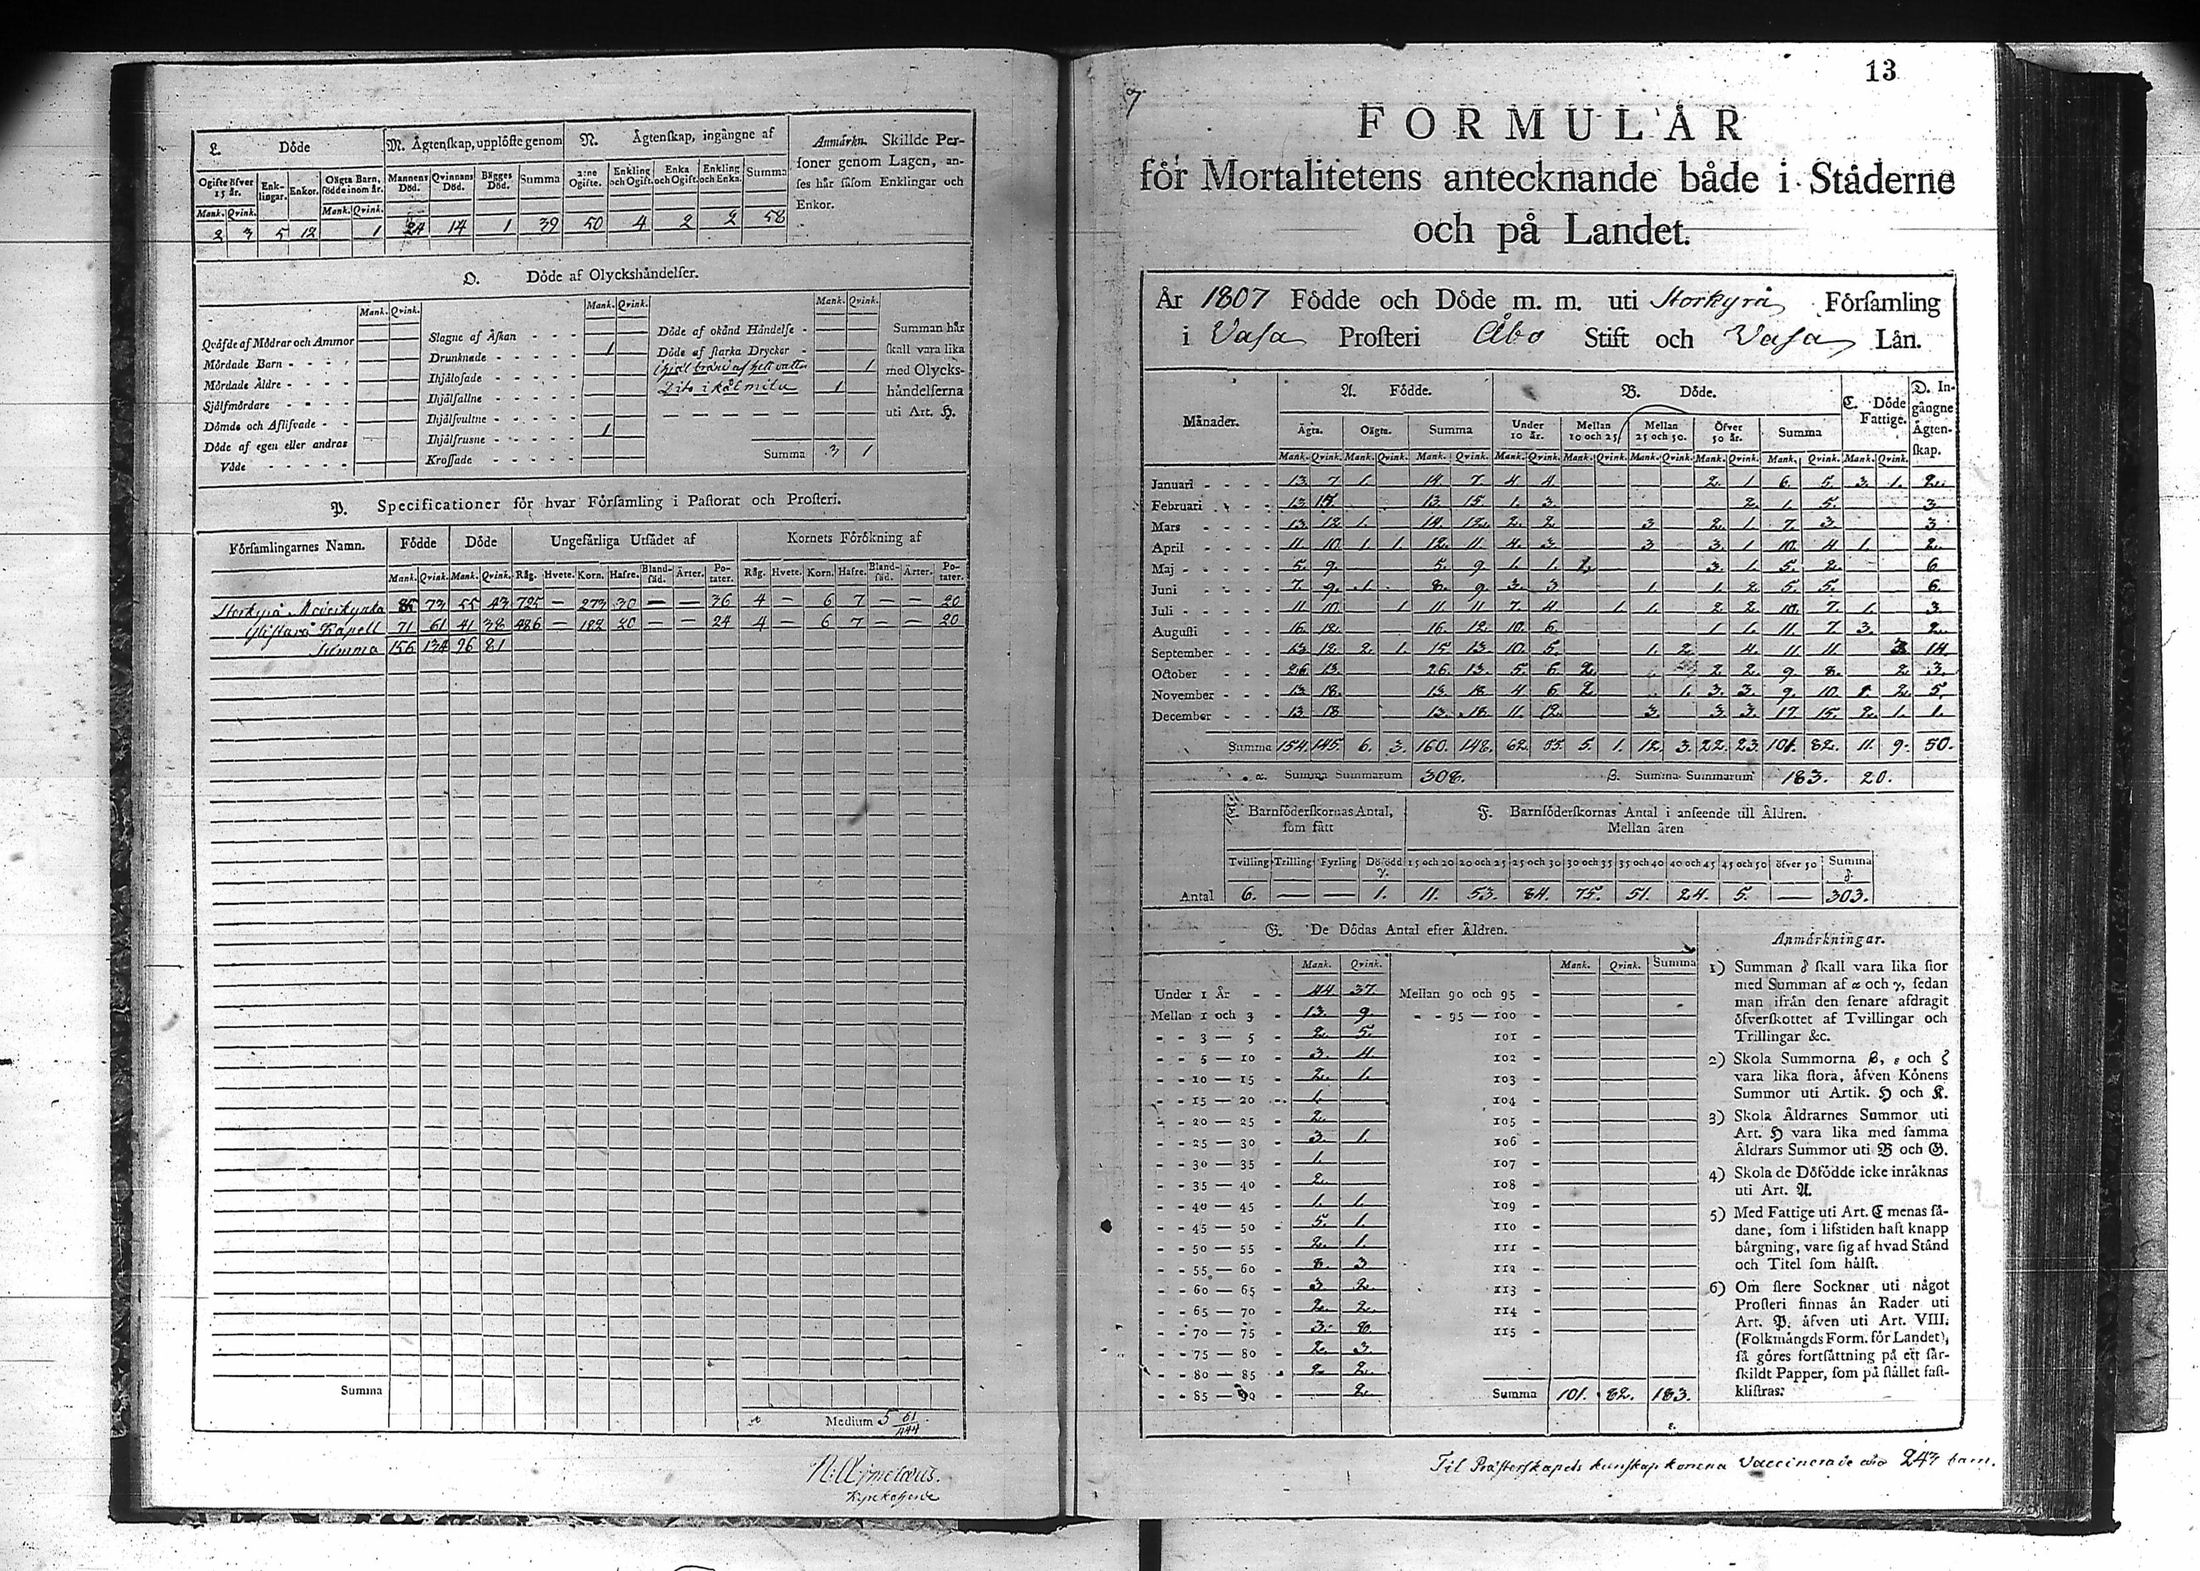 L. Döde
M. Ågtenskap, upplöste genom
N. Ågtenskap, ingångne af
Anmärkn. Skillde Per-
soner genom Lagen, an-
ses här såsom Enklingar och
Enkor.
Ogifte öfver 15 år. Enk-lingar. Enkor. Oägta Barn, födde inom år. Mannens Död. Qvinnans Död. Bägges Död. Summa 2:ne Ogifte. Enkling och Ogift. Enka och Ogift. Enkling och Enka. Summa
Mank. Qvink. Mank. Qvink.
2 3 5 12 1 24 14 1 39 50 4 2 2 58
O. Döde af Olyckshändelser.
Mank. Qvink. Mank. Qvink. Mank. Qvink.
Qväfde af Mödrar och Ammor
Mördade Barn
Mördade Äldre
Sjelfmördare
Dömde och Aflifvade
Döde af egen eller andras
Våde
Slagne af Åskan
Drunknade 1
Ihjälosade
Ihjälfallne
Ihjälsvultne
Ihjälfrusne 1
Krossade
Döde af okänd Händelse
Döde af starka Drycker
ihjäl bränd af hett vatten 1
Dito i kålmila 1
Summa 3 1
Summan här
skall vara lika
med Olycks-
händelserna
uti Art. H.
P. Specificationer för hvar Församling i Pastorat och Prosteri.
Församlingarnes Namn. Födde Döde Ungefärliga Utsädet af Kornets Förökning af
Mank. Qvink. Mank. Qvink. Råg. Hvete. Korn. Hafre. Bland-säd. Ärter. Po-tater. Råg. Hvete. Korn. Hafre. Bland-säd. Ärter. Po-tater.
Storkyrå Moderkyrka 85 73 55 43 725 — 273 30 — — 36 4 — 6 7 — — 20
Kapell 71 61 41 38 486 — 182 20 — — 24 4 — 6 7 — — 20
Summa 156 134 96 81
Summa
Medium 5 61/444
13
7
FORMULÄR
för Mortalitetens antecknande både i Städerne
och på Landet.
År 1807 Födde och Döde m. m. uti Storkyrå Församling
i Vasa Prosteri Åbo Stift och Vasa Län.
Månader. A. Födde. B. Döde. C. Döde Fattige. D. In-gångne Ågten-skap.
Ägta. Oägta. Summa Under 10 år. Mellan 10 och 25. Mellan 25 och 50. Öfver 50 år. Summa
Mank. Qvink. Mank. Qvink. Mank. Qvink. Mank. Qvink. Mank. Qvink. Mank. Qvink. Mank. Qvink. Mank. Qvink. Mank. Qvink.
Januari 13 7 1. 14 7 4 4 2. 1 6. 5. 3. 1. 2.
Februari 13 15 13. 15. 1. 3. 2. 1. 5. 3
Mars 13 12 1. 14. 12. 2. 2 3 2. 1 7 3 3
April 11. 10. 1. 1. 12. 11. 4. 3. 3 3. 1 10. 4 1. 2.
Maj 5 9. 5. 9. 1. 1. 2. 3. 1. 5. 2. 6
Juni 7. 9. 1. 8. 9. 3. 3 1. 1. 2. 5. 5. 6.
Juli 11. 10. 1 11. 11 7. 4 1. 1. 2 2 10. 7. 1. 3
Augusti 16. 12. 16. 12 10. 6. 1 1. 11. 7. 3. 2.
September 13 12. 2. 1. 15. 13 10. 5. 1. 2. 4. 11 11. 3. 14.
October 26. 13. 26. 13. 5. 6 2. 2 2. 9. 8. 2 3.
November 13 18. 13. 18 4 6 2 1. 3. 3. 9. 10 1. 2. 5.
December 13 18 13. 18. 11. 12. 3. 3 3. 17 15. 2. 1. 1.
Summa 154. 145. 6. 3. 160. 148. 62. 55. 5. 1. 12. 3. 22. 23. 101. 82. 11. 9. 50.
α. Summa Summarum 308. β. Summa Summarum 183. 20.
E. Barnföderskornas Antal, som fått
F. Barnföderskornas Antal i anseende till Äldren.
Mellan åren
Tvilling Trilling Fyrling Dödfödd γ. 15 och 20 20 och 25 25 och 30 30 och 35 35 och 40 40 och 45 45 och 50 öfver 50 Summa δ.
Antal 6. — — 1. 11. 53. 84. 75. 51. 24. 5. — 303.
G. De Dödas Antal efter Äldren.
Mank. Qvink. Mank. Qvink. Summa
Under 1 År 44 37. Mellan 90 och 95
Mellan 1 och 3 13. 9. 95 — 100
3 — 5 2. 5. 101
5 — 10 3. 4. 102
10 — 15 2. 1. 103
15 — 20 1. 104
20 — 25 2. 105
25 — 30 3. 1. 106
30 — 35 1. 107
35 — 40 2. 108
40 — 45 1. 1. 109
45 — 50 5. 1 110
50 — 55 2. 1 111
55 — 60 8. 3 112
60 — 65 3 2. 113
65 — 70 2. 2. 114
70 — 75 3. 8. 115
75 — 80 2. 3.
80 — 85 2 2.
85 — 90 2. Summa 101. 82. 183.
ε.
Anmärkningar.
1) Summan δ skall vara lika stor
med Summan af α och γ, sedan
man ifrån den senare afdragit
öfverskottet af Tvillingar och
Trillingar &c.
2) Skola Summorna β, ε och ζ
vara lika stora, äfven Könens
Summor uti Artik. H och K.
3) Skola Äldrarnes Summor uti
Art. H vara lika med samma
Äldrars Summor uti B och G.
4) Skola de Döfödde icke inräknas
uti Art. A.
5) Med Fattige uti Art. C menas så-
dane, som i lifstiden haft knapp
bärgning, vare sig af hvad Stånd
och Titel som hälst.
6) Om flere Socknar uti något
Prosteri finnas än Rader uti
Art. P. äfven uti Art. VIII.
(Folkmängds Form. för Landet),
så göres fortsättning på ett sär-
skildt Papper, som på stället fast-
klistras.
Til Prästerskapets kunskap komna Vaccinerade äro 247 barn.